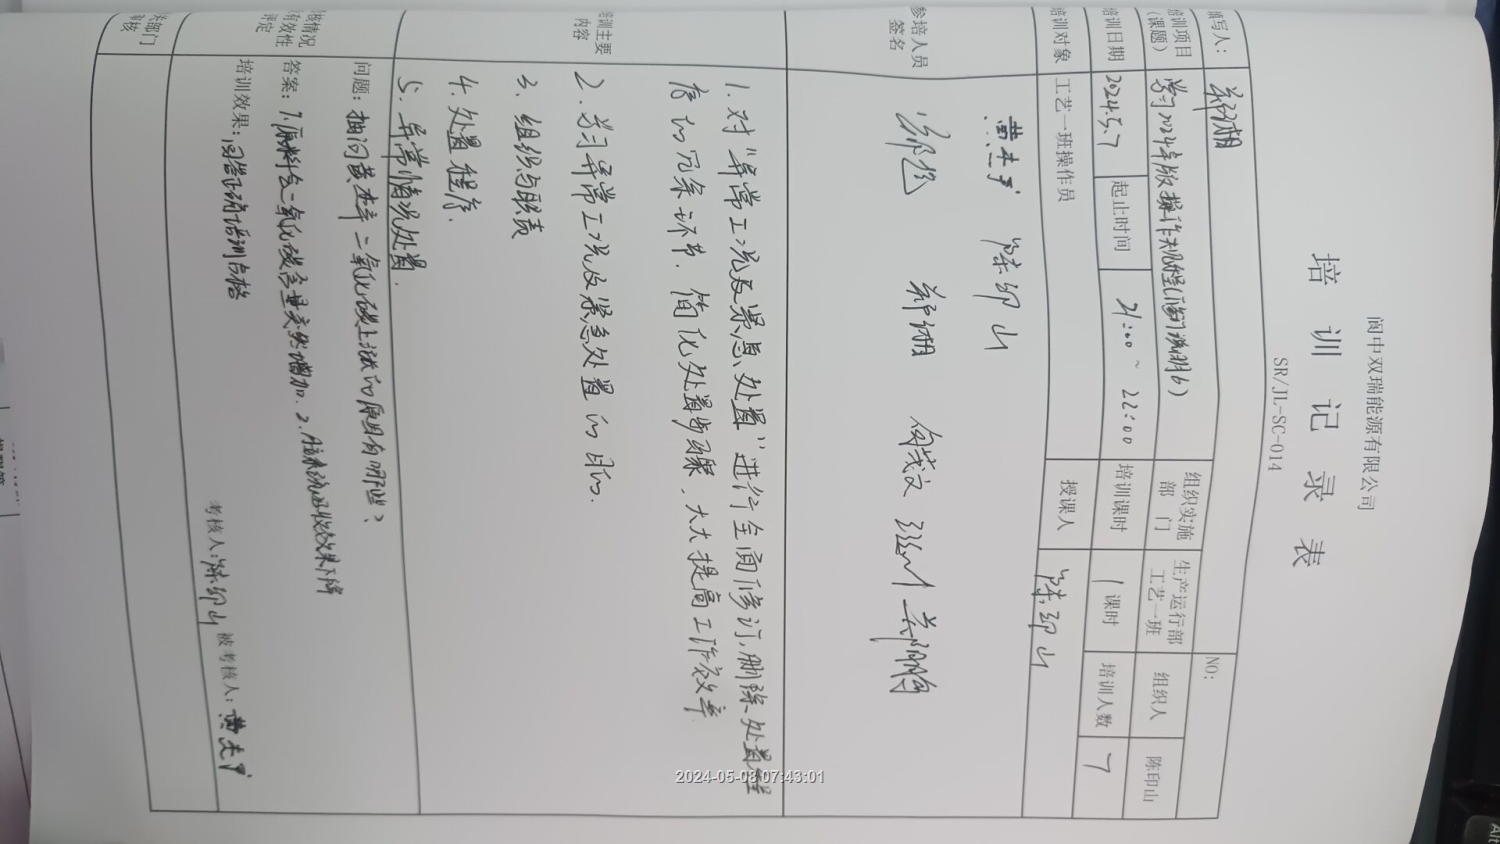 阆中双瑞能源有限公司
培训记录表
SR/JL-SC-014
NO:
填写人:
培训项目(课题) 学习2024年版操作规程 组织实施部门 生产运行部工艺一班 组织人 陈印山
培训日期 2024.5.7 起止时间 21:00 ~ 22:00 培训课时 1课时 培训人数 7
培训对象 工艺一班操作员 授课人 陈印山
参培人员签名
陈印山
培训主要内容
1. 对"异常工况及紧急处置"进行全面修订,删除处置程
序的冗余环节. 简化处置步骤, 大大提高工作效率
2. 学习异常工况及紧急处置的目的.
3. 组织与职责
4. 处置程序.
5. 异常情况处置.
考核情况有效性评定
问题: 抽问黄 二氧化碳上涨的原因有哪些?
答案: 1. 原料气二氧化碳含量突然增加. 2. 吸收效果下降
培训效果: 回答正确培训合格
考核人: 陈印山 被考核人:
部门审核
2024-05-08 07:43:01
Alt